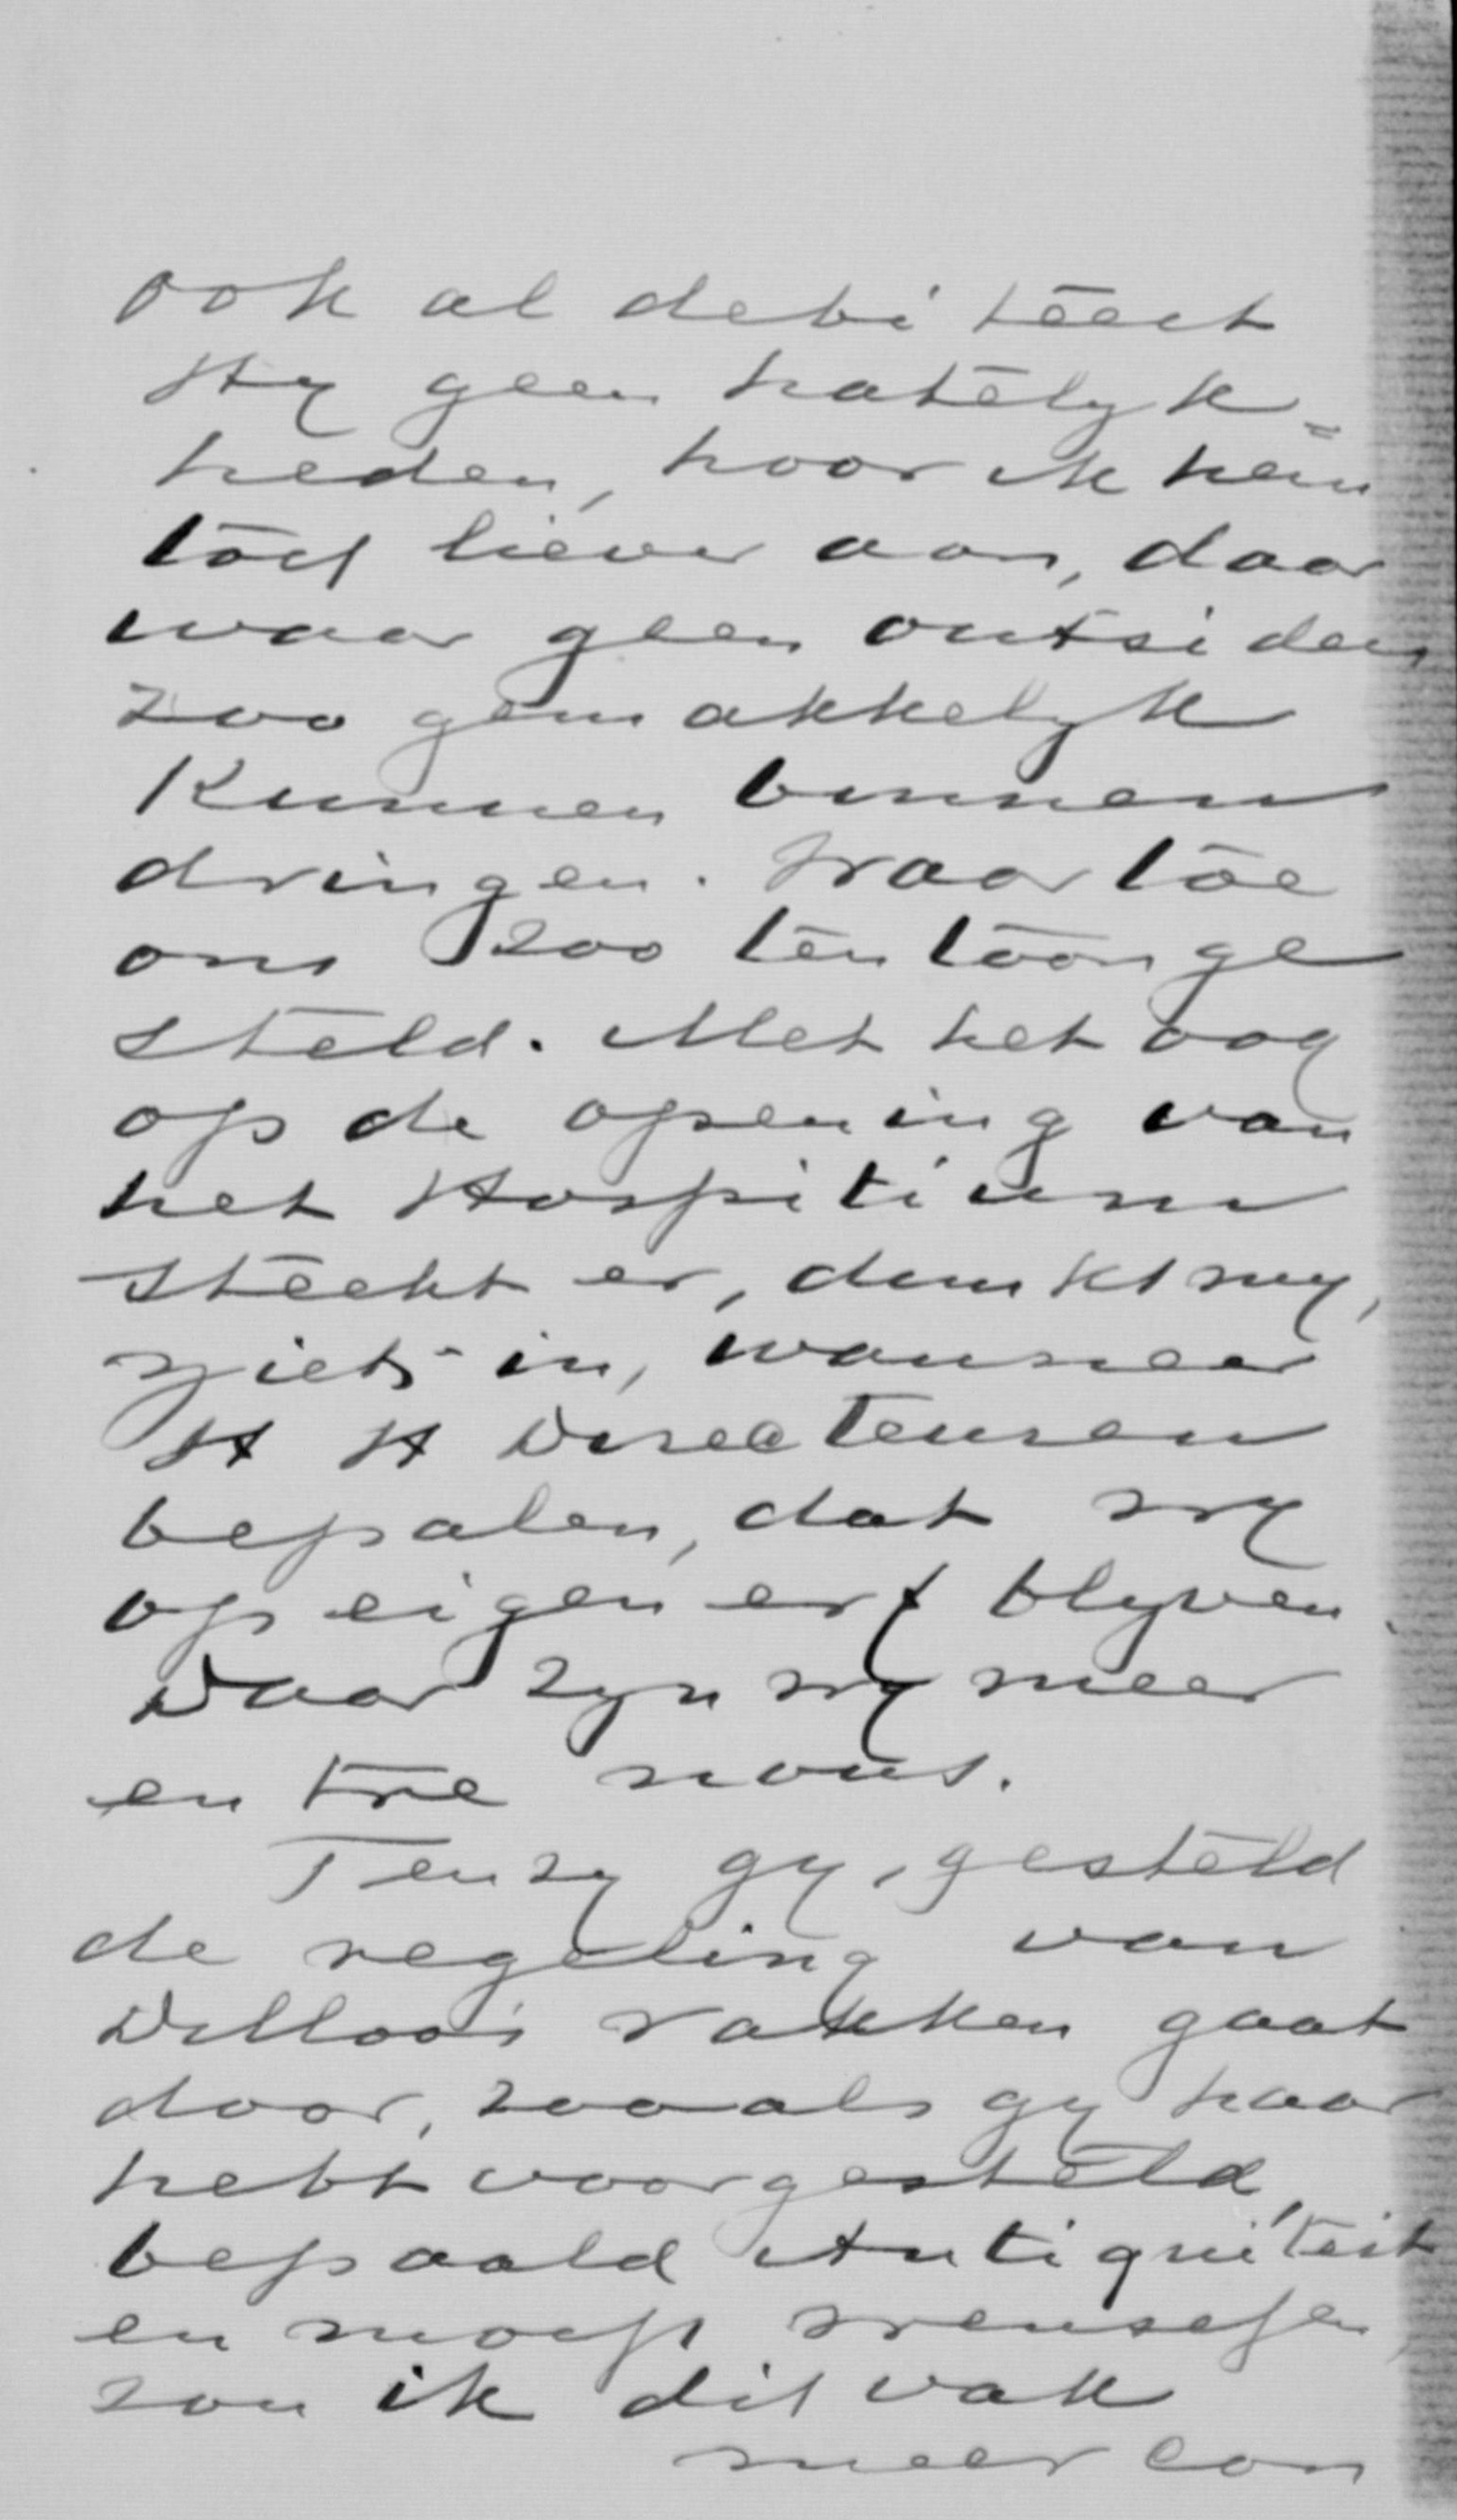 ook al debiteert
Hy geen hatelyk=
heden, hoor ik hem
toch liever aan, daar
waar geen outsiders
zoo gemakkelyk
kunnen binnen
dringen. Waartoe
ons zoo tentoonge
steld. Met het oog
op de opening van
het Hospitium
steekt er, dunkt my,
niets in, wanneer
HH Directeuren
bepalen, dat wy
op eigen erf blyven.
Daar zyn wy meer
entre nous.
Tenzy gy, gesteld
de regeling van
vakken gaat
door, zooals gy haar
hebt voorgesteld,
bepaald Antiquiteit
en mocht wenschen,
zou ik dit vak
meer con